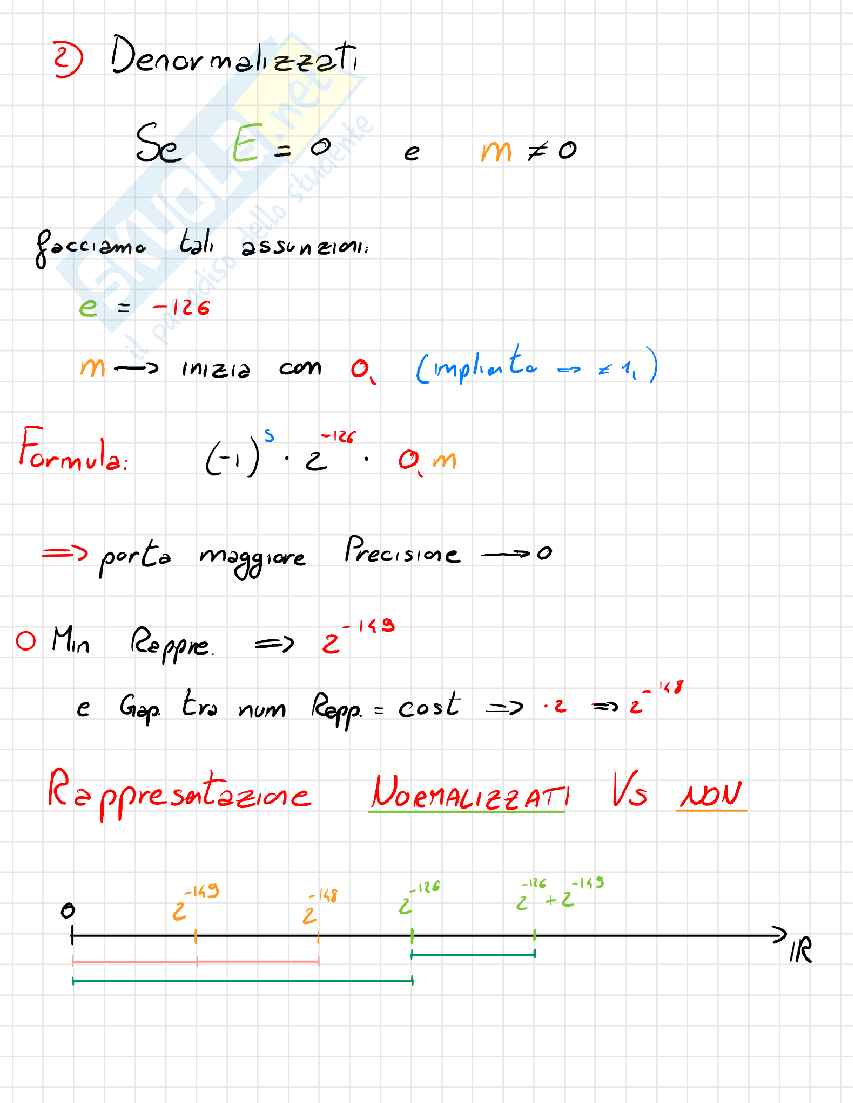 2) Denormalizzati
Se E = 0 e m ≠ 0
facciamo tali assunzioni:
e = -126
m → inizia con 0, (implicito → ≠ 1,)
Formula: (-1)^s · 2^-126 · 0,m
=> porta maggiore Precisione → 0
O Min Rappre. => 2^-149
e Gap tra num Repp. = cost => ·2 => 2^-148
Rappresentazione NORMALIZZATI Vs NON
0 2^-149 2^-148 2^-126 2^-126 + 2^-149
IR
SKUOLA.net
il paradiso dello studente